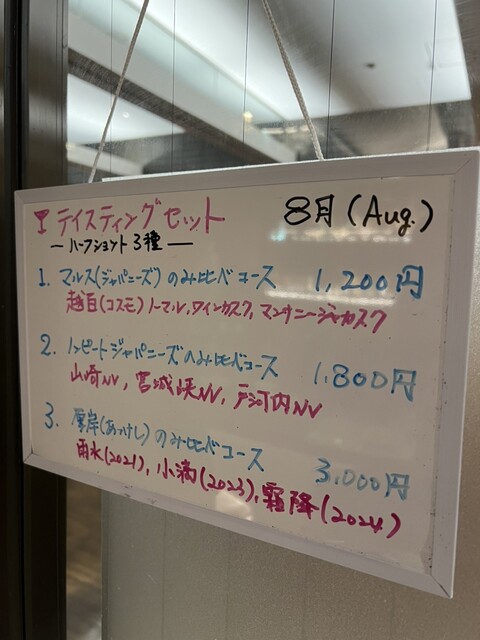 テイスティングセット 8月(Aug.)
ーハーフショット3種ー
1. マルス(ジャパニーズ)のみ比べコース 1,200円
越百(コスモ)ノーマル,ワインカスク,マンサニージャカスク
2. ノンピートジャパニーズのみ比べコース 1,800円
山崎NV, 宮城峡NV, 戸河内NV
3. 厚岸(あっけし)のみ比べコース 3,000円
雨水(2021), 小満(2023), 霜降(2024)